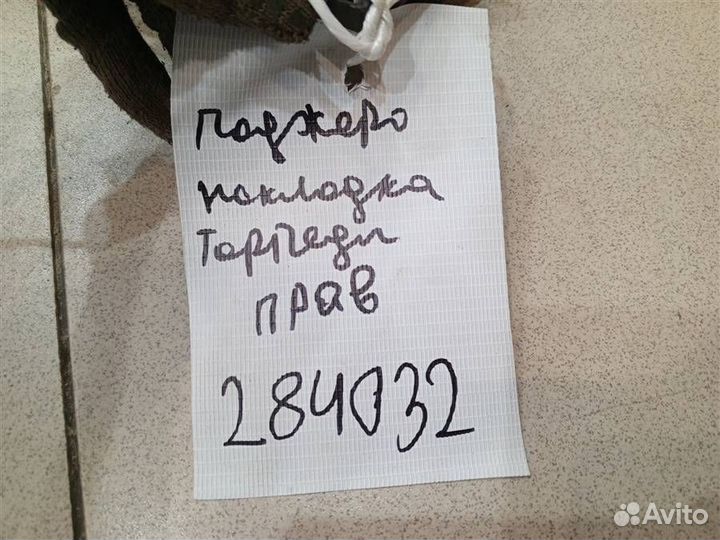 Паджеро
накладка
Торпеды
прав
284032
Avito